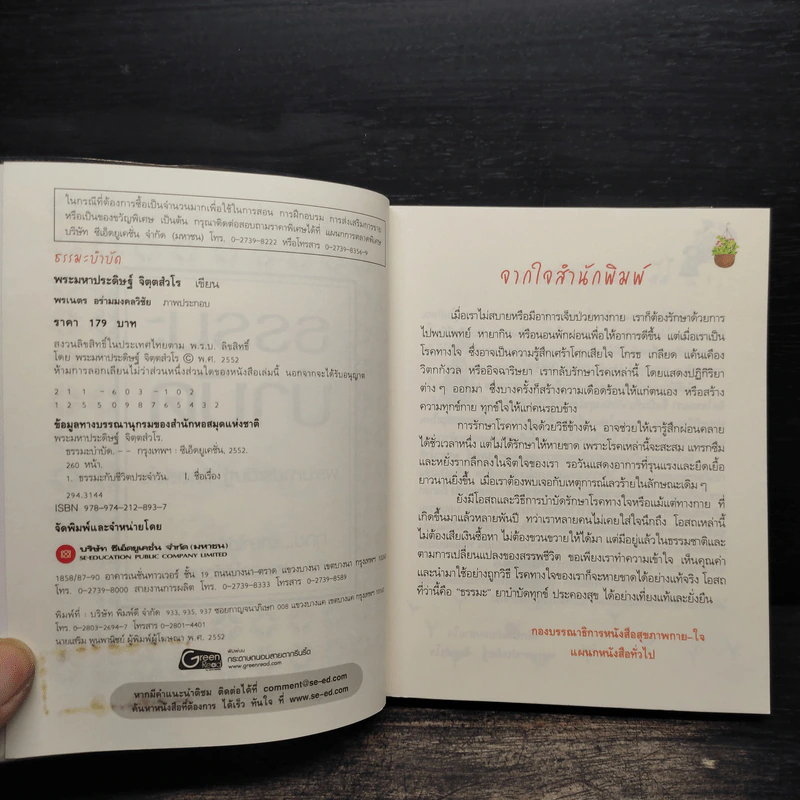 ในกรณีที่ต้องการซื้อเป็นจำนวนมากเพื่อใช้ในการสอน การฝึกอบรม การส่งเสริมการขาย
หรือเป็นของขวัญพิเศษ เป็นต้น กรุณาติดต่อสอบถามราคาพิเศษได้ที่ แผนกการตลาดพิเศษ
บริษัท ซีเอ็ดยูเคชั่น จำกัด (มหาชน) โทร. 0-2739-8222 หรือโทรสาร 0-2739-8356-9
ธรรมะบำบัด
พระมหาประดิษฐ์ จิตฺตสํวโร เขียน
พรเนตร อร่ามมงคลวิชัย ภาพประกอบ
ราคา 179 บาท
สงวนลิขสิทธิ์ในประเทศไทยตาม พ.ร.บ. ลิขสิทธิ์
โดย พระมหาประดิษฐ์ จิตฺตสํวโร © พ.ศ. 2552
ห้ามการลอกเลียนไม่ว่าส่วนหนึ่งส่วนใดของหนังสือเล่มนี้ นอกจากจะได้รับอนุญาต
2 1 1 - 6 0 3 - 1 0 2
1 2 5 5 0 9 8 7 6 5 4 3 2
ข้อมูลทางบรรณานุกรมของสำนักหอสมุดแห่งชาติ
พระมหาประดิษฐ์ จิตฺตสํวโร.
ธรรมะบำบัด. -- กรุงเทพฯ : ซีเอ็ดยูเคชั่น, 2552.
260 หน้า.
1. ธรรมะกับชีวิตประจำวัน. I. ชื่อเรื่อง
294.3144
ISBN 978-974-212-893-7
จัดพิมพ์และจำหน่ายโดย
บริษัท ซีเอ็ดยูเคชั่น จำกัด (มหาชน)
SE-EDUCATION PUBLIC COMPANY LIMITED
1858/87-90 อาคารเนชั่นทาวเวอร์ ชั้น 19 ถนนบางนา-ตราด แขวงบางนา เขตบางนา กรุงเทพฯ
โทร. 0-2739-8000 สายงานการผลิต โทร. 0-2739-8333 โทรสาร 0-2739-8589
พิมพ์ที่ : บริษัท พิมพ์ดี จำกัด 933, 935, 937 ซอยกาญจนาภิเษก 008 แขวงบางแค เขตบางแค กรุงเทพฯ
โทร. 0-2803-2694-7 โทรสาร 0-2801-4401
นายเสริม พูนพาณิชย์ ผู้พิมพ์ผู้โฆษณา พ.ศ. 2552
Green Read
พิมพ์บน
กระดาษถนอมสายตากรีนรี้ด
www.greenread.com
หากมีคำแนะนำติชม ติดต่อได้ที่ comment@se-ed.com
ค้นหาหนังสือที่ต้องการ ได้เร็ว ทันใจ ที่ www.se-ed.com
จากใจสำนักพิมพ์
เมื่อเราไม่สบายหรือมีอาการเจ็บป่วยทางกาย เราก็ต้องรักษาด้วยการ
ไปพบแพทย์ หายากิน หรือนอนพักผ่อนเพื่อให้อาการดีขึ้น แต่เมื่อเราเป็น
โรคทางใจ ซึ่งอาจเป็นความรู้สึกเศร้าโศกเสียใจ โกรธ เกลียด แค้นเคือง
วิตกกังวล หรืออิจฉาริษยา เรากลับรักษาโรคเหล่านี้ โดยแสดงปฏิกิริยา
ต่าง ๆ ออกมา ซึ่งบางครั้งก็สร้างความเดือดร้อนให้แก่ตนเอง หรือสร้าง
ความทุกข์กาย ทุกข์ใจให้แก่คนรอบข้าง
การรักษาโรคทางใจด้วยวิธีข้างต้น อาจช่วยให้เรารู้สึกผ่อนคลาย
ได้ชั่วเวลาหนึ่ง แต่ไม่ได้รักษาให้หายขาด เพราะโรคเหล่านี้จะสะสม แทรกซึม
และหยั่งรากลึกลงในจิตใจของเรา รอวันแสดงอาการที่รุนแรงและยืดเยื้อ
ยาวนานยิ่งขึ้น เมื่อเราต้องพบเจอกับเหตุการณ์เลวร้ายในลักษณะเดิม ๆ
ยังมีโอสถและวิธีการบำบัดรักษาโรคทางใจหรือแม้แต่ทางกาย ที่
เกิดขึ้นมาแล้วหลายพันปี ทว่าเราหลายคนไม่เคยใส่ใจนึกถึง โอสถเหล่านี้
ไม่ต้องเสียเงินซื้อหา ไม่ต้องขวนขวายให้ได้มา แต่มีอยู่แล้วในธรรมชาติและ
ตามการเปลี่ยนแปลงของสรรพชีวิต ขอเพียงเราทำความเข้าใจ เห็นคุณค่า
และนำมาใช้อย่างถูกวิธี โรคทางใจของเราก็จะหายขาดได้อย่างแท้จริง โอสถ
ที่ว่านี้คือ "ธรรมะ" ยาบำบัดทุกข์ ประคองสุข ได้อย่างเที่ยงแท้และยั่งยืน
กองบรรณาธิการหนังสือสุขภาพกาย-ใจ
แผนกหนังสือทั่วไป